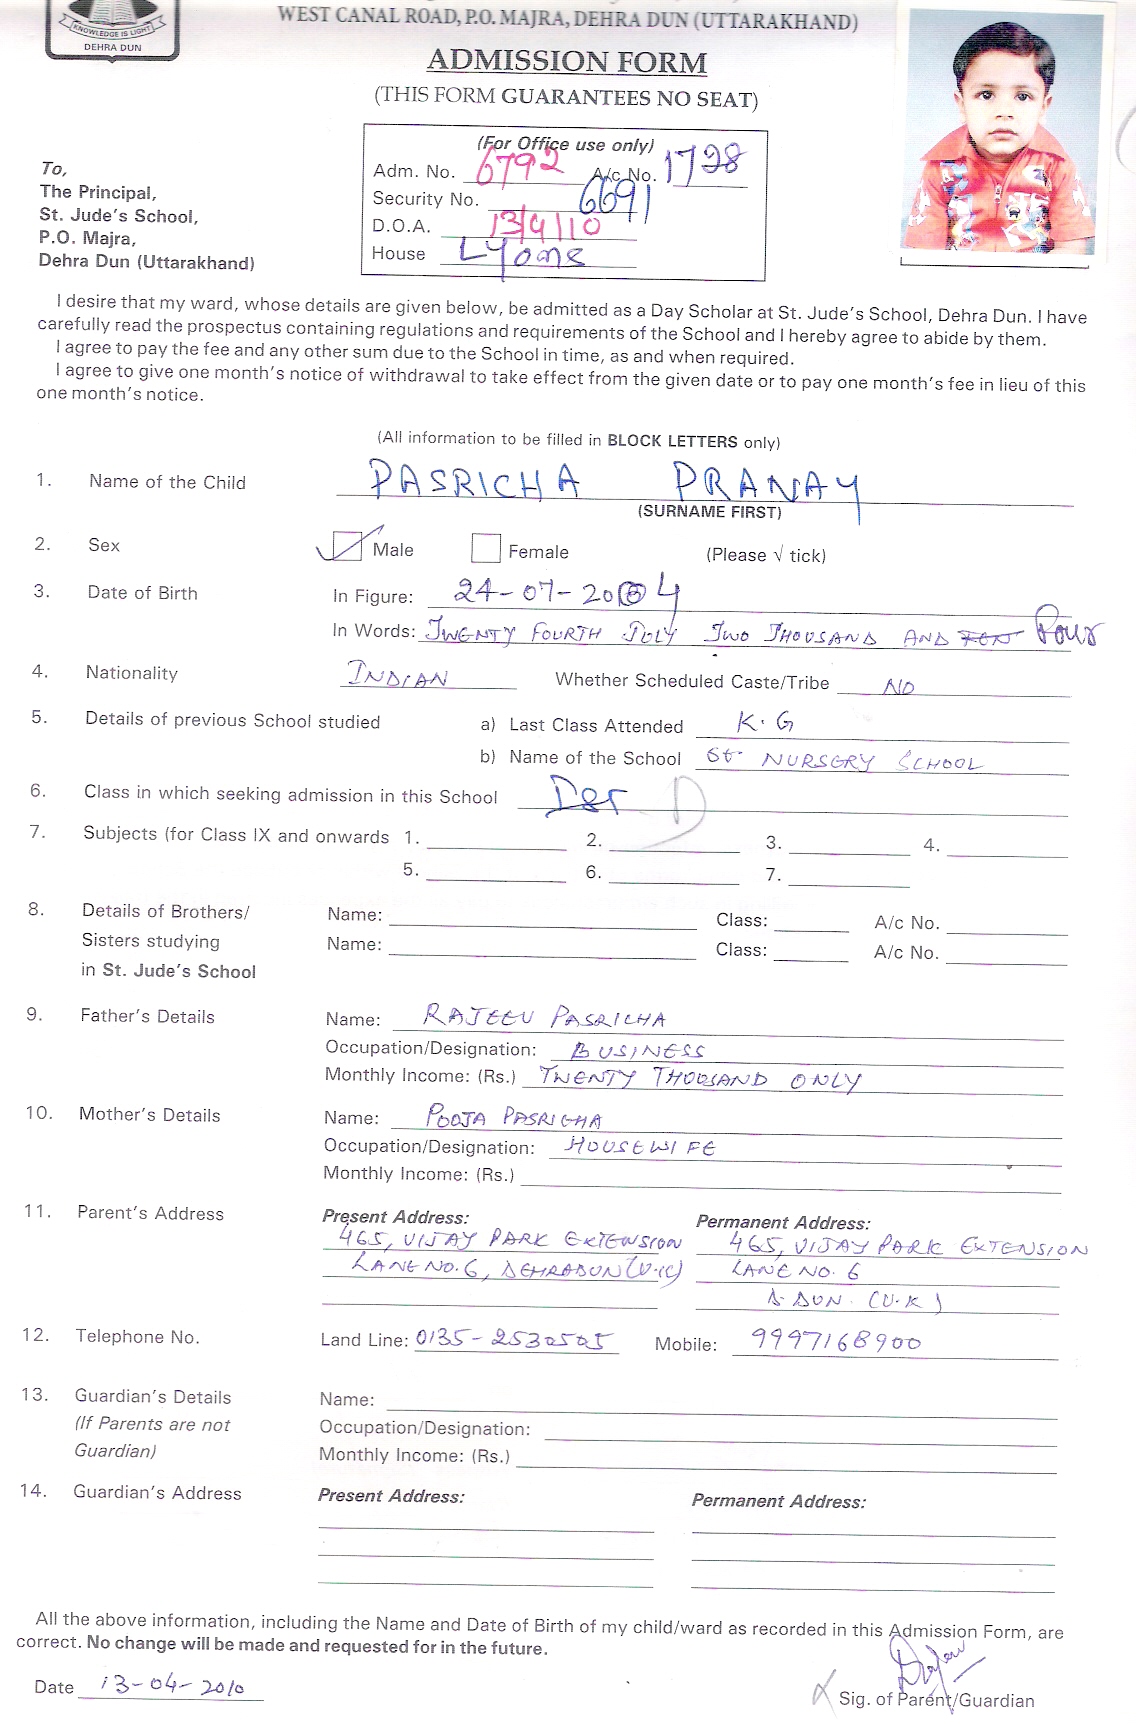 KNOWLEDGE IS LIGHT
DEHRA DUN
WEST CANAL ROAD, P.O. MAJRA, DEHRA DUN (UTTARAKHAND)
ADMISSION FORM
(THIS FORM GUARANTEES NO SEAT)
(For Office use only)
Adm. No. 6792 A/c No. 1728
Security No. 6691
D.O.A. 13/4/10
House Lyons
To,
The Principal,
St. Jude's School,
P.O. Majra,
Dehra Dun (Uttarakhand)
I desire that my ward, whose details are given below, be admitted as a Day Scholar at St. Jude's School, Dehra Dun. I have
carefully read the prospectus containing regulations and requirements of the School and I hereby agree to abide by them.
I agree to pay the fee and any other sum due to the School in time, as and when required.
I agree to give one month's notice of withdrawal to take effect from the given date or to pay one month's fee in lieu of this
one month's notice.
(All information to be filled in BLOCK LETTERS only)
1. Name of the Child PASRICHA PRANAY
(SURNAME FIRST)
2. Sex Male Female (Please √ tick)
3. Date of Birth In Figure: 24-07-2004
In Words: TWENTY FOURTH JULY TWO THOUSAND AND Four
4. Nationality INDIAN Whether Scheduled Caste/Tribe NO
5. Details of previous School studied a) Last Class Attended K.G
b) Name of the School St. NURSERY SCHOOL
6. Class in which seeking admission in this School D
7. Subjects (for Class IX and onwards 1. 2. 3. 4.
5. 6. 7.
8. Details of Brothers/ Name: Class: A/c No.
Sisters studying Name: Class: A/c No.
in St. Jude's School
9. Father's Details Name: RAJEEV PASRICHA
Occupation/Designation: BUSINESS
Monthly Income: (Rs.) TWENTY THOUSAND ONLY
10. Mother's Details Name: POOJA PASRICHA
Occupation/Designation: HOUSEWIFE
Monthly Income: (Rs.)
11. Parent's Address Present Address: Permanent Address:
465, VIJAY PARK EXTENSION 465, VIJAY PARK EXTENSION
LANE NO. 6, DEHRADUN (U.K) LANE NO. 6
D. DUN. (U.K)
12. Telephone No. Land Line: 0135-2530505 Mobile: 9997168900
13. Guardian's Details Name:
(If Parents are not Occupation/Designation:
Guardian) Monthly Income: (Rs.)
14. Guardian's Address Present Address: Permanent Address:
All the above information, including the Name and Date of Birth of my child/ward as recorded in this Admission Form, are
correct. No change will be made and requested for in the future.
Date 13-04-2010
Sig. of Parent/Guardian